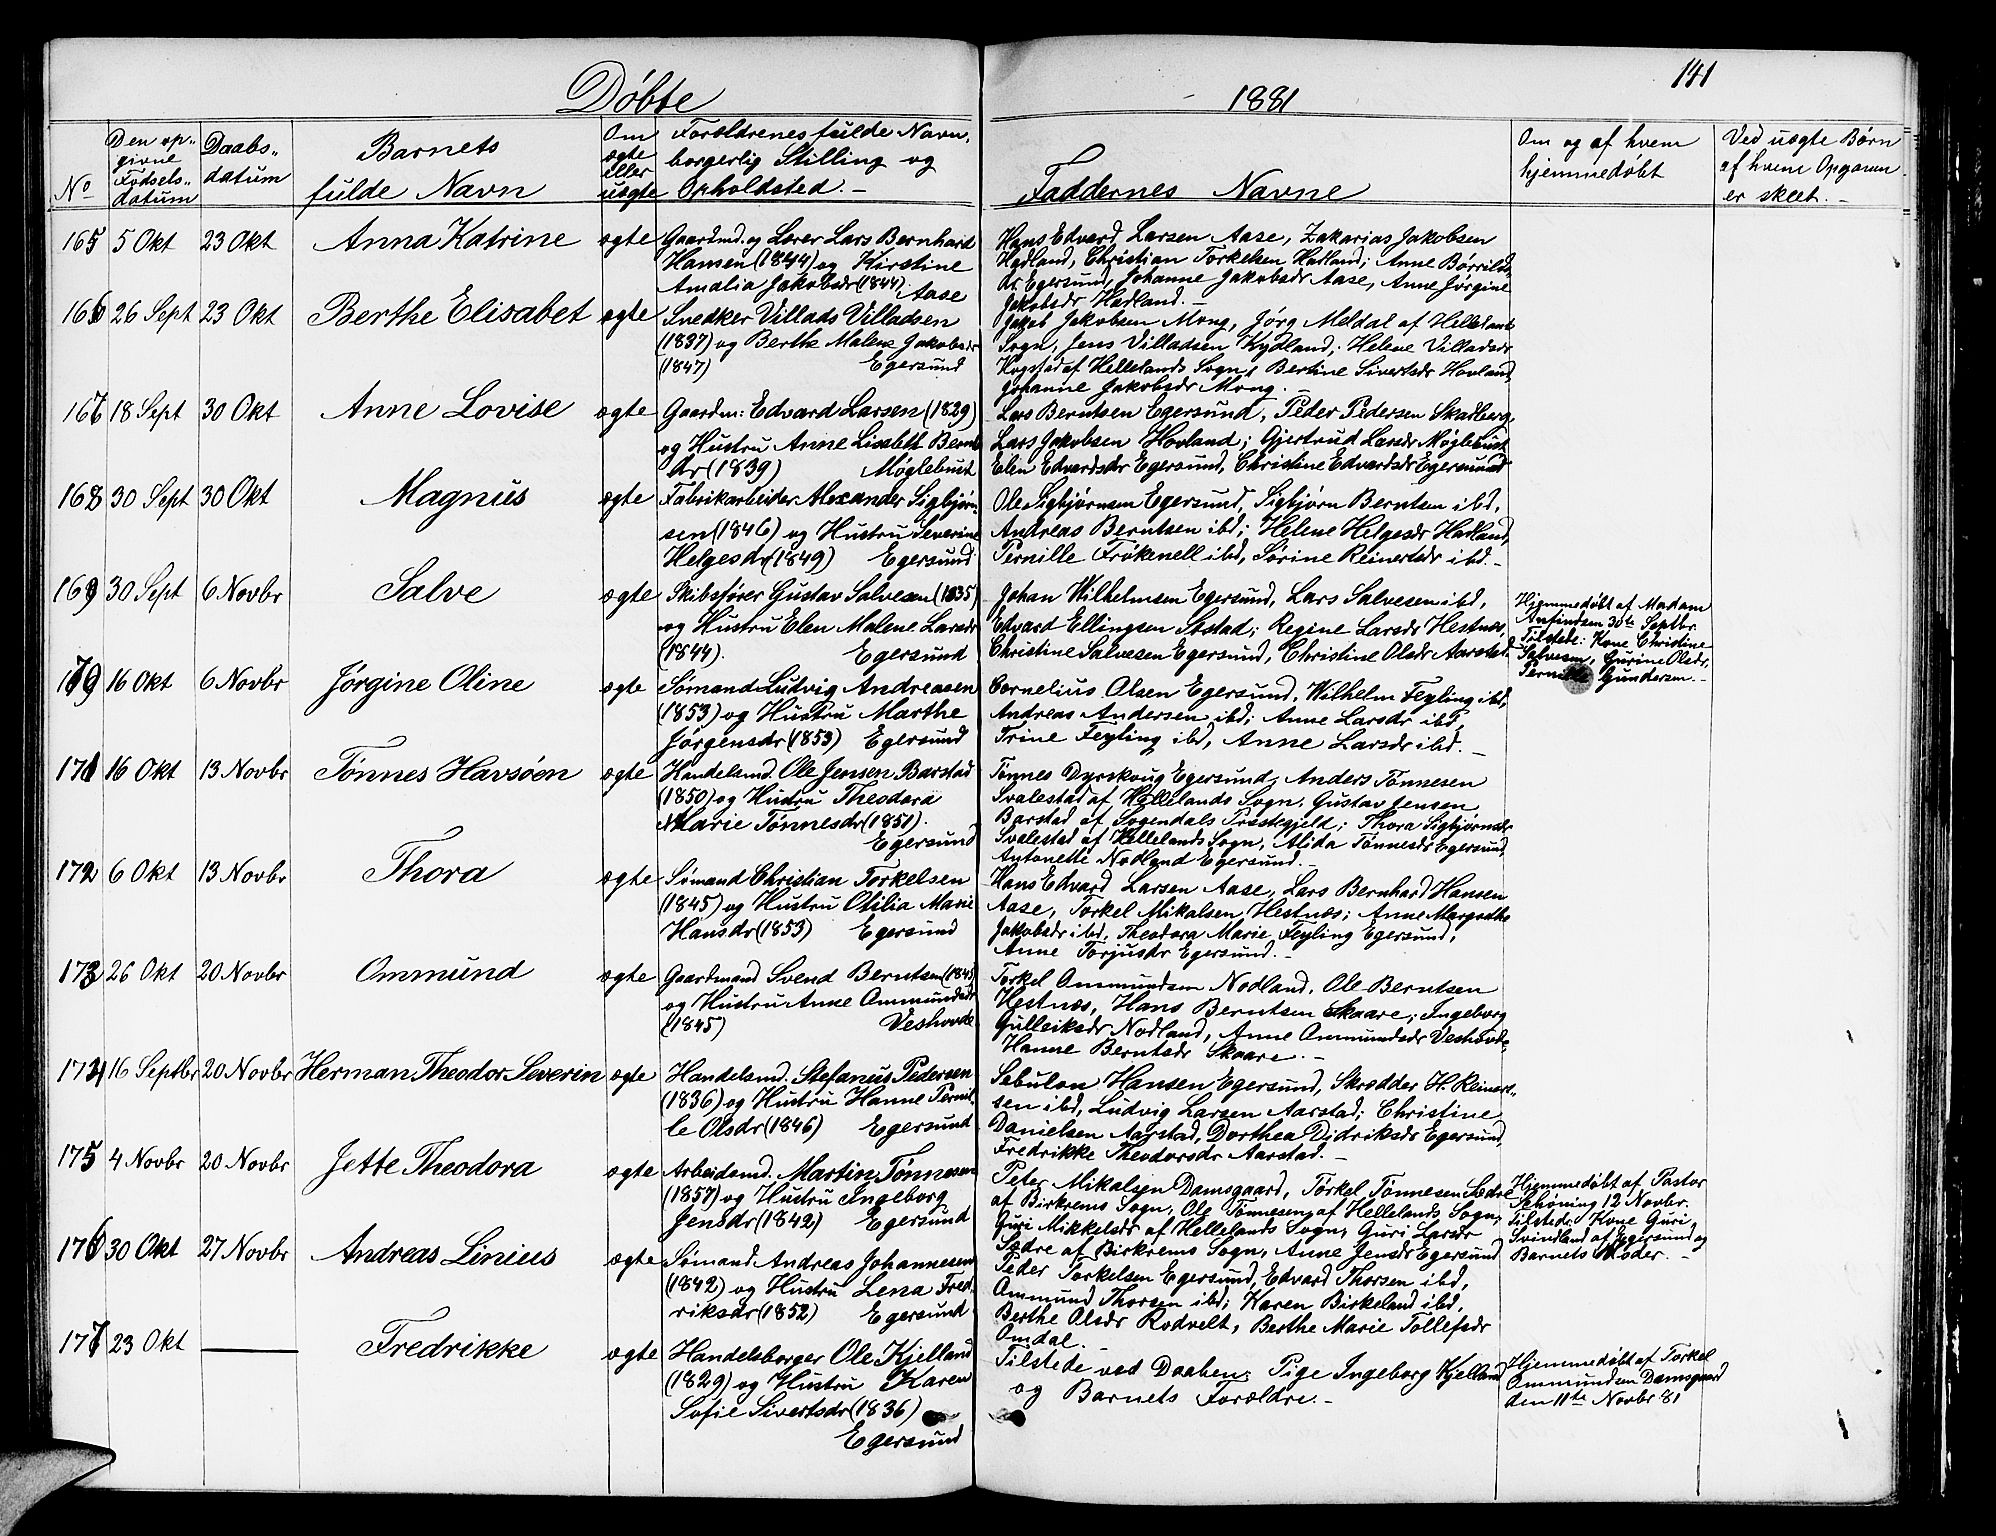 Døbte
1881
141
No
Den op-
givne
Fødsels-
datum
Daabs-
datum
Barnets
fulde Navn
Om
ægte
eller
uægte
Forældrenes fulde Navn,
borgerlig Stilling og
Opholdsted.-
Faddernes Navne
Om og af hvem
hjemmedøbt
Ved uægte Børn
af hvem Opgaven
er skeet.-
165 5 Okt 23 Okt Anna Katrine ægte
Gaardmd. og Lærer Lars Bernhard
Hansen (1844) og Kirstine
Amalia Jakobsdr (1844).
Aase
Hans Edvard Larsen Aase, Zakarias Jakobsen
Hadland, Christian Torkelsen Hadland; Anne
Egersund, Johanne Jakobsdr Aase, Anne Jørgine
Jakobsdr Hadland.-
166 26 Sept 23 Okt Berthe Elisabet ægte
Snedker Villads Villadsen
(1837) og Berthe Malene Jakobsdr
(1847) Egersund
Jakob Jakobsen Mong, Jørg Meldal af Hellelands
Sogn, Jens Villadsen Kydland; Helene Villadsdr
Hogstad af Hellelands Sogn, Bertine Sivertsdr Hovland,
Johanne Jakobsdr Mong.-
167 18 Sept 30 Okt Anne Lovise ægte
Gaardm: Edvard Larsen (1829)
og Hustru Anne Lisabeth Bernts
dr (1839) Møglebust
Lars Berntsen Egersund, Peder Pedersen Skadberg,
Lars Jakobsen Hovland; Gjertrud Larsdr Møglebust
Elin Edvardsdr Egersund, Christine Edvardsdr Egersund
168 30 Sept 30 Okt Magnus ægte
Fabrikarbeider Alexander Sigbjørn-
sen (1846) og Hustru Severine
Helgesdr (1849) Egersund
Ole Sigbjørnsen Egersund, Sigbjørn Berntsen ibd,
Andreas Berntsen ibd; Helene Helgesdr Hadland,
Pernille Frøkenell ibd, Sørine Reinertsdr ibd.-
169 30 Sept 6 Novbr Salve ægte
Skibsfører Gustav Salvesen (1835)
og Hustru Elen Malene Larsdr
(1844). Egersund
Johan Wilhelmsen Egersund, Lars Salvesen ibd,
Edvard Ellingsen Aastad; Regine Larsdr Hestnes,
Christine Salvesen Egersund, Christine Olsdr Aarstad.
Hjemmedøbt af Madam
Anfindsen 30te Septbr.
Tilstede: Kone Christine
Salvesen, Gurine Olsdr,
Pernille Gundersen.-
170 16 Okt 6 Novbr Jørgine Oline ægte
Sømand Ludvig Andreasen
(1853) og Hustru Marthe
Jørgensdr (1853) Egersund
Cornelius Olsen Egersund, Wilhelm Feyling ibd,
Andreas Andersen ibd; Anne Larsdr ibd,
Trine Feyling ibd, Anne Larsdr ibd.-
171 16 Okt 13 Novbr Tønnes Havsøen ægte
Handelsmd. Ole Jensen Barstad
(1850) og Hustru Theodora
Marie Tønnesdr (1851).
Egersund
Tønnes Dyrskoug Egersund, Anders Tønnesen
Svalestad af Hellelands Sogn, Gustav Jensen
Barstad af Sogendals Præstegjeld; Thora Sigbjørnsdr
Svalestad af Hellelands Sogn, Alida Tønnesdr Egersund,
Antonette Nodland Egersund.-
172 6 Okt 13 Novbr Thora ægte
Sømand Christian Torkelsen
(1845) og Hustru Otilia Marie
Hansdr (1853) Egersund
Hans Edvard Larsen Aase, Lars Bernhard Hansen
Aase, Torkel Mikalsen Hestnes; Anne Margrethe
Jakobsdr ibd, Theodora Marie Feyling Egersund,
Anne Torjusdr Egersund.-
173 26 Okt 20 Novbr Ommund ægte
Gaardmand Svend Berntsen (1843)
og Hustru Anne Ommundsdr
(1845) Veshovde
Torkel Ommundsen Nodland, Ole Berntsen
Hestnæs, Hans Berntsen Skaare; Ingeborg
Gulleiksdr Nodland, Anne Ommundsdr Veshovde,
Hanne Berntsdr Skaare.-
174 16 Septbr 20 Novbr Herman Theodor Severin ægte
Handelsmd. Stefanus Pedersen
(1836) og Hustru Hanne Pernil-
le Olsdr (1846) Egersund
Sebulon Hansen Egersund, Skrædder H. Reinert-
sen ibd, Ludvig Larsen Aarstad; Christine
Danielsen Aarstad, Dorthea Didriksdr Egersund,
Fredrikke Theodorsdr Aarstad.-
175 4 Novbr 20 Novbr Jette Theodora ægte
Arbeidsmd. Martin Tønnesen
(1857) og Hustru Ingeborg
Jensdr (1842) Egersund
Peter Mikalsen Damsgaard, Torkel Tønnesen Sædre
af Birkrems Sogn, Ole Tønnesen af Hellelands Sogn;
Guri Mikkelsdr af Hellelands Sogn, Guri Larsdr
Sædre af Birkrems Sogn, Anne Jensdr Egersund.
Hjemmedøbt af Pastor
Schøning 12 Novbr.
Tilstede: Kone Guri
Svindland af Egersund og
Barnets Moder.-
176 30 Okt 27 Novbr Andreas Linius ægte
Sømand Andreas Johannesen
(1842) og Hustru Lena Fred-
riksdr (1852) Egersund
Peder Torkelsen Egersund, Edvard Thorsen ibd,
Ommund Thorsen ibd; Karen Birkeland ibd,
Berthe Olsdr Rodvelt, Berthe Marie Tollefsdr
Omdal.-
177 23 Okt — Fredrikke ægte
Handelsborger Ole Kjelland
(1829) og Hustru Karen
Sofie Sivertsdr (1836)
Egersund
Tilstede ved Daaben: Pige Ingeborg Kjelland
og Barnets Forældre.-
Hjemmedøbt af Torkel
Ommundsen Damsgaard
den 11te Novbr 81